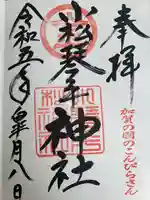 奉拝
加賀の国のこんぴらさん
小松琴平神社
令和五年皐月八日